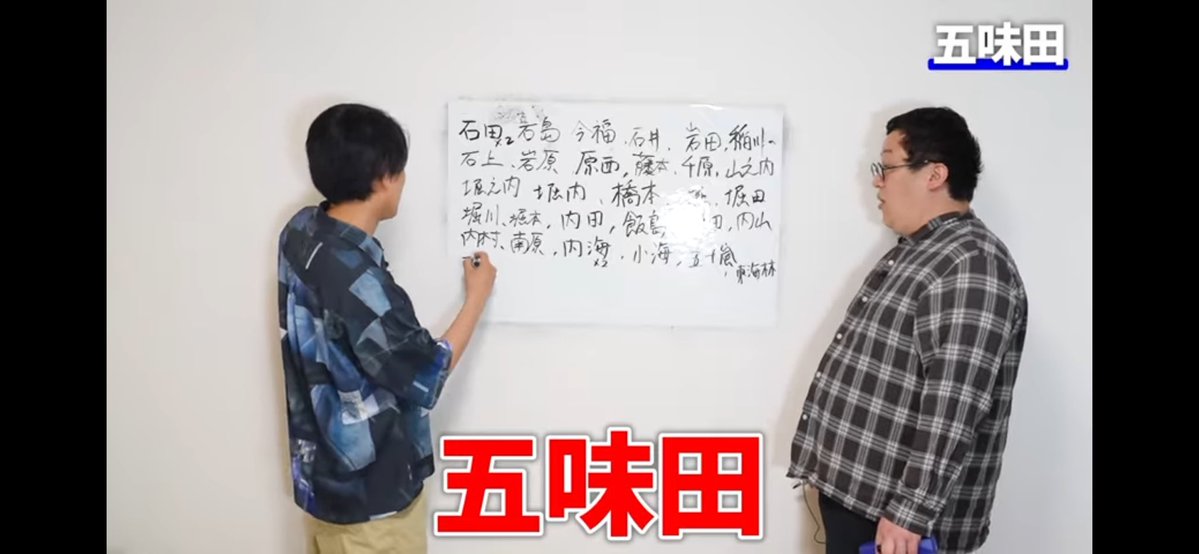 五味田
石田x2 石島 今福、石井、岩田、稲川、
石上、岩原 原西、藤本、千原、山之内
堀之内 堀内、橋本、堀田
堀川、堀本、内田、飯島 田、内山
内村、南原、内海x2、小海、五十嵐、東海林
五味田